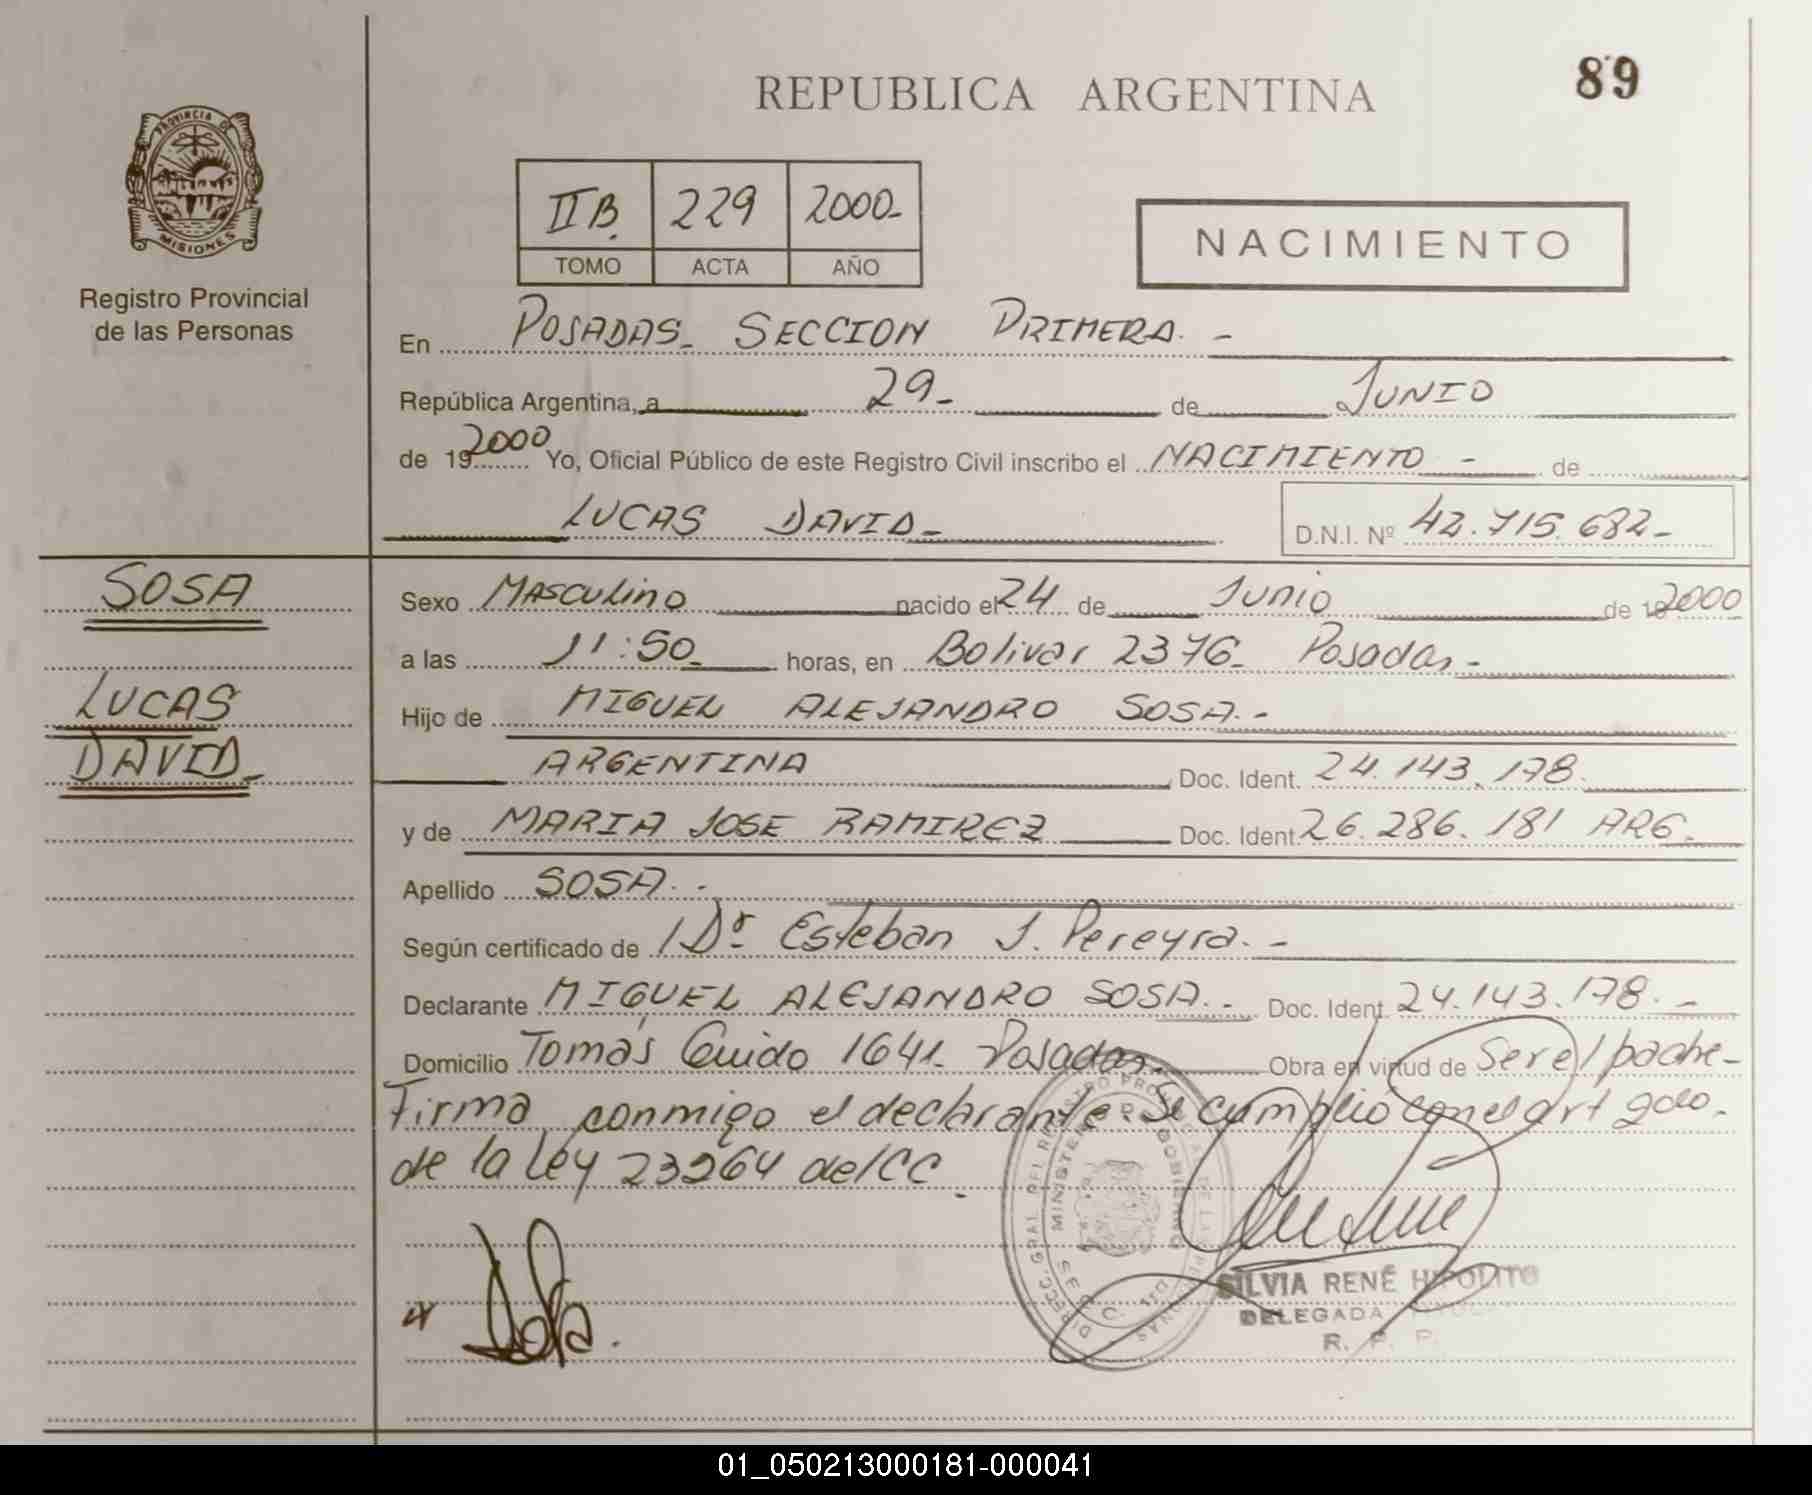 89
REPUBLICA ARGENTINA
PROVINCIA DE
MISIONES
Registro Provincial
de las Personas
II B. 229 2000-
TOMO ACTA AÑO
NACIMIENTO
En POSADAS- SECCION PRIMERA. -
República Argentina, a 29- de JUNIO
de 19 2000 Yo, Oficial Público de este Registro Civil inscribo el NACIMIENTO - de
LUCAS DAVID- D.N.I. Nº 42.715.682-
SOSA
LUCAS
DAVID-
Sexo Masculino nacido el 24 de Junio de 19 2000
a las 11:50 horas, en Bolivar 2376- Posadas.-
Hijo de MIGUEL ALEJANDRO SOSA.-
ARGENTINA Doc. Ident. 24.143.178.
y de MARIA JOSE RAMIREZ Doc. Ident. 26.286.181 ARG.
Apellido SOSA.-
Según certificado de Dr Esteban J. Pereyra.-
Declarante MIGUEL ALEJANDRO SOSA.- Doc. Ident. 24.143.178.-
Domicilio Tomás Guido 1641- Posadas- Obra en virtud de Ser el padre-
Firma conmigo el declarante. Se cumplió con el art 2do.
de la Ley 23264 del CC.
SILVIA RENÉ HIPOLITO
DELEGADA
R. P. P.
01_050213000181-000041